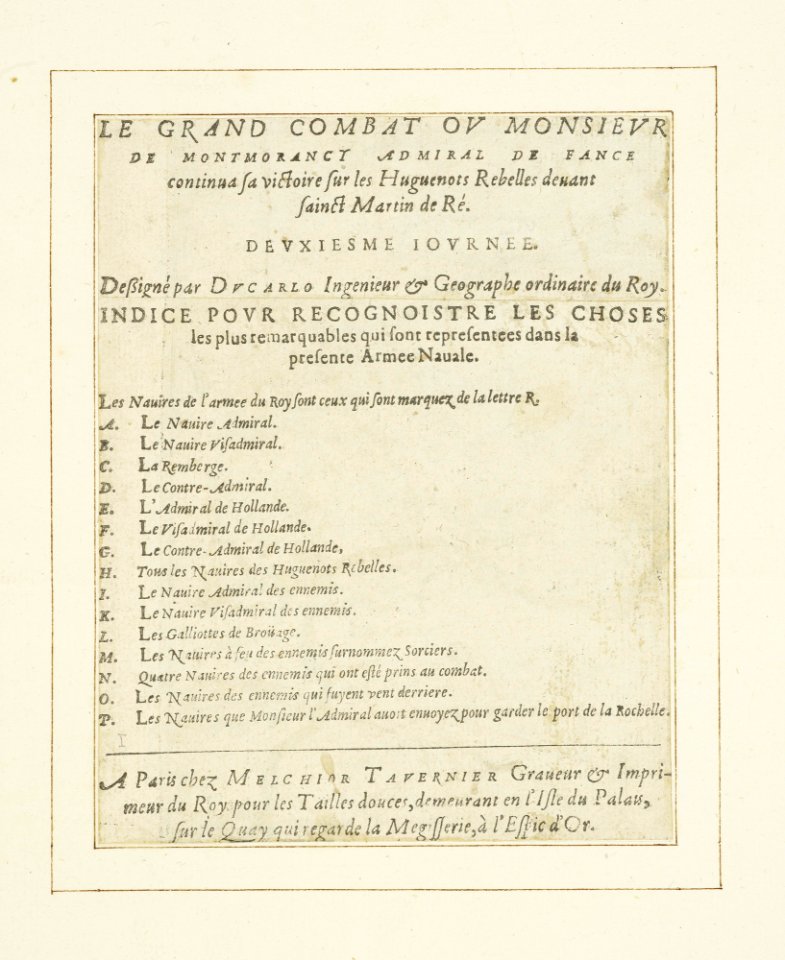 LE GRAND COMBAT OV MONSIEVR
DE MONTMORANCY ADMIRAL DE FANCE
continua sa victoire ſur les Huguenots Rebelles deuant
ſainct Martin de Ré.
DEVXIESME IOVRNEE.
Deßigné par DVCARLO Ingenieur & Geographe ordinaire du Roy.
INDICE POVR RECOGNOISTRE LES CHOSES
les plus remarquables qui ſont repreſentees dans la
preſente Armee Nauale.
Les Nauires de l'armee du Roy ſont ceux qui ſont marquez de la lettre R.
A. Le Nauire Admiral.
B. Le Nauire Viſadmiral.
C. La Remberge.
D. Le Contre-Admiral.
E. L'Admiral de Hollande.
F. Le Viſadmiral de Hollande.
G. Le Contre-Admiral de Hollande,
H. Tous les Nauires des Huguenots Rebelles.
I. Le Nauire Admiral des ennemis.
K. Le Nauire Viſadmiral des ennemis.
L. Les Galliottes de Broüage.
M. Les Nauires à feu des ennemis ſurnommez Sorciers.
N. Quatre Nauires des ennemis qui ont eſté prins au combat.
O. Les Nauires des ennemis qui fuyent vent derriere.
P. Les Nauires que Monſieur l'Admiral auoit enuoyez pour garder le port de la Rochelle.
I
A Paris chez MELCHIOR TAVERNIER Graueur & Impri-
meur du Roy pour les Tailles douces, demeurant en l'Iſle du Palais,
ſur le Quay qui regarde la Megiſſerie, à l'Eſpic d'Or.